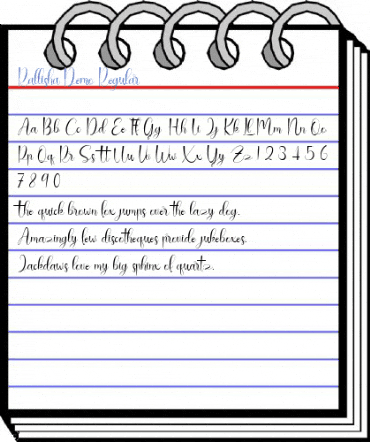 Rallisha Demo Regular
Aa Bb Cc Dd Ee Ff Gg Hh Ii Jj Kk Ll Mm Nn Oo
Pp Qq Rr Ss Tt Uu Vv Ww Xx Yy Zz 1 2 3 4 5 6
7 8 9 0
the quick brown fox jumps over the lazy dog.
Amazingly few discotheques provide jukeboxes.
Jackdaws love my big sphinx of quartz.